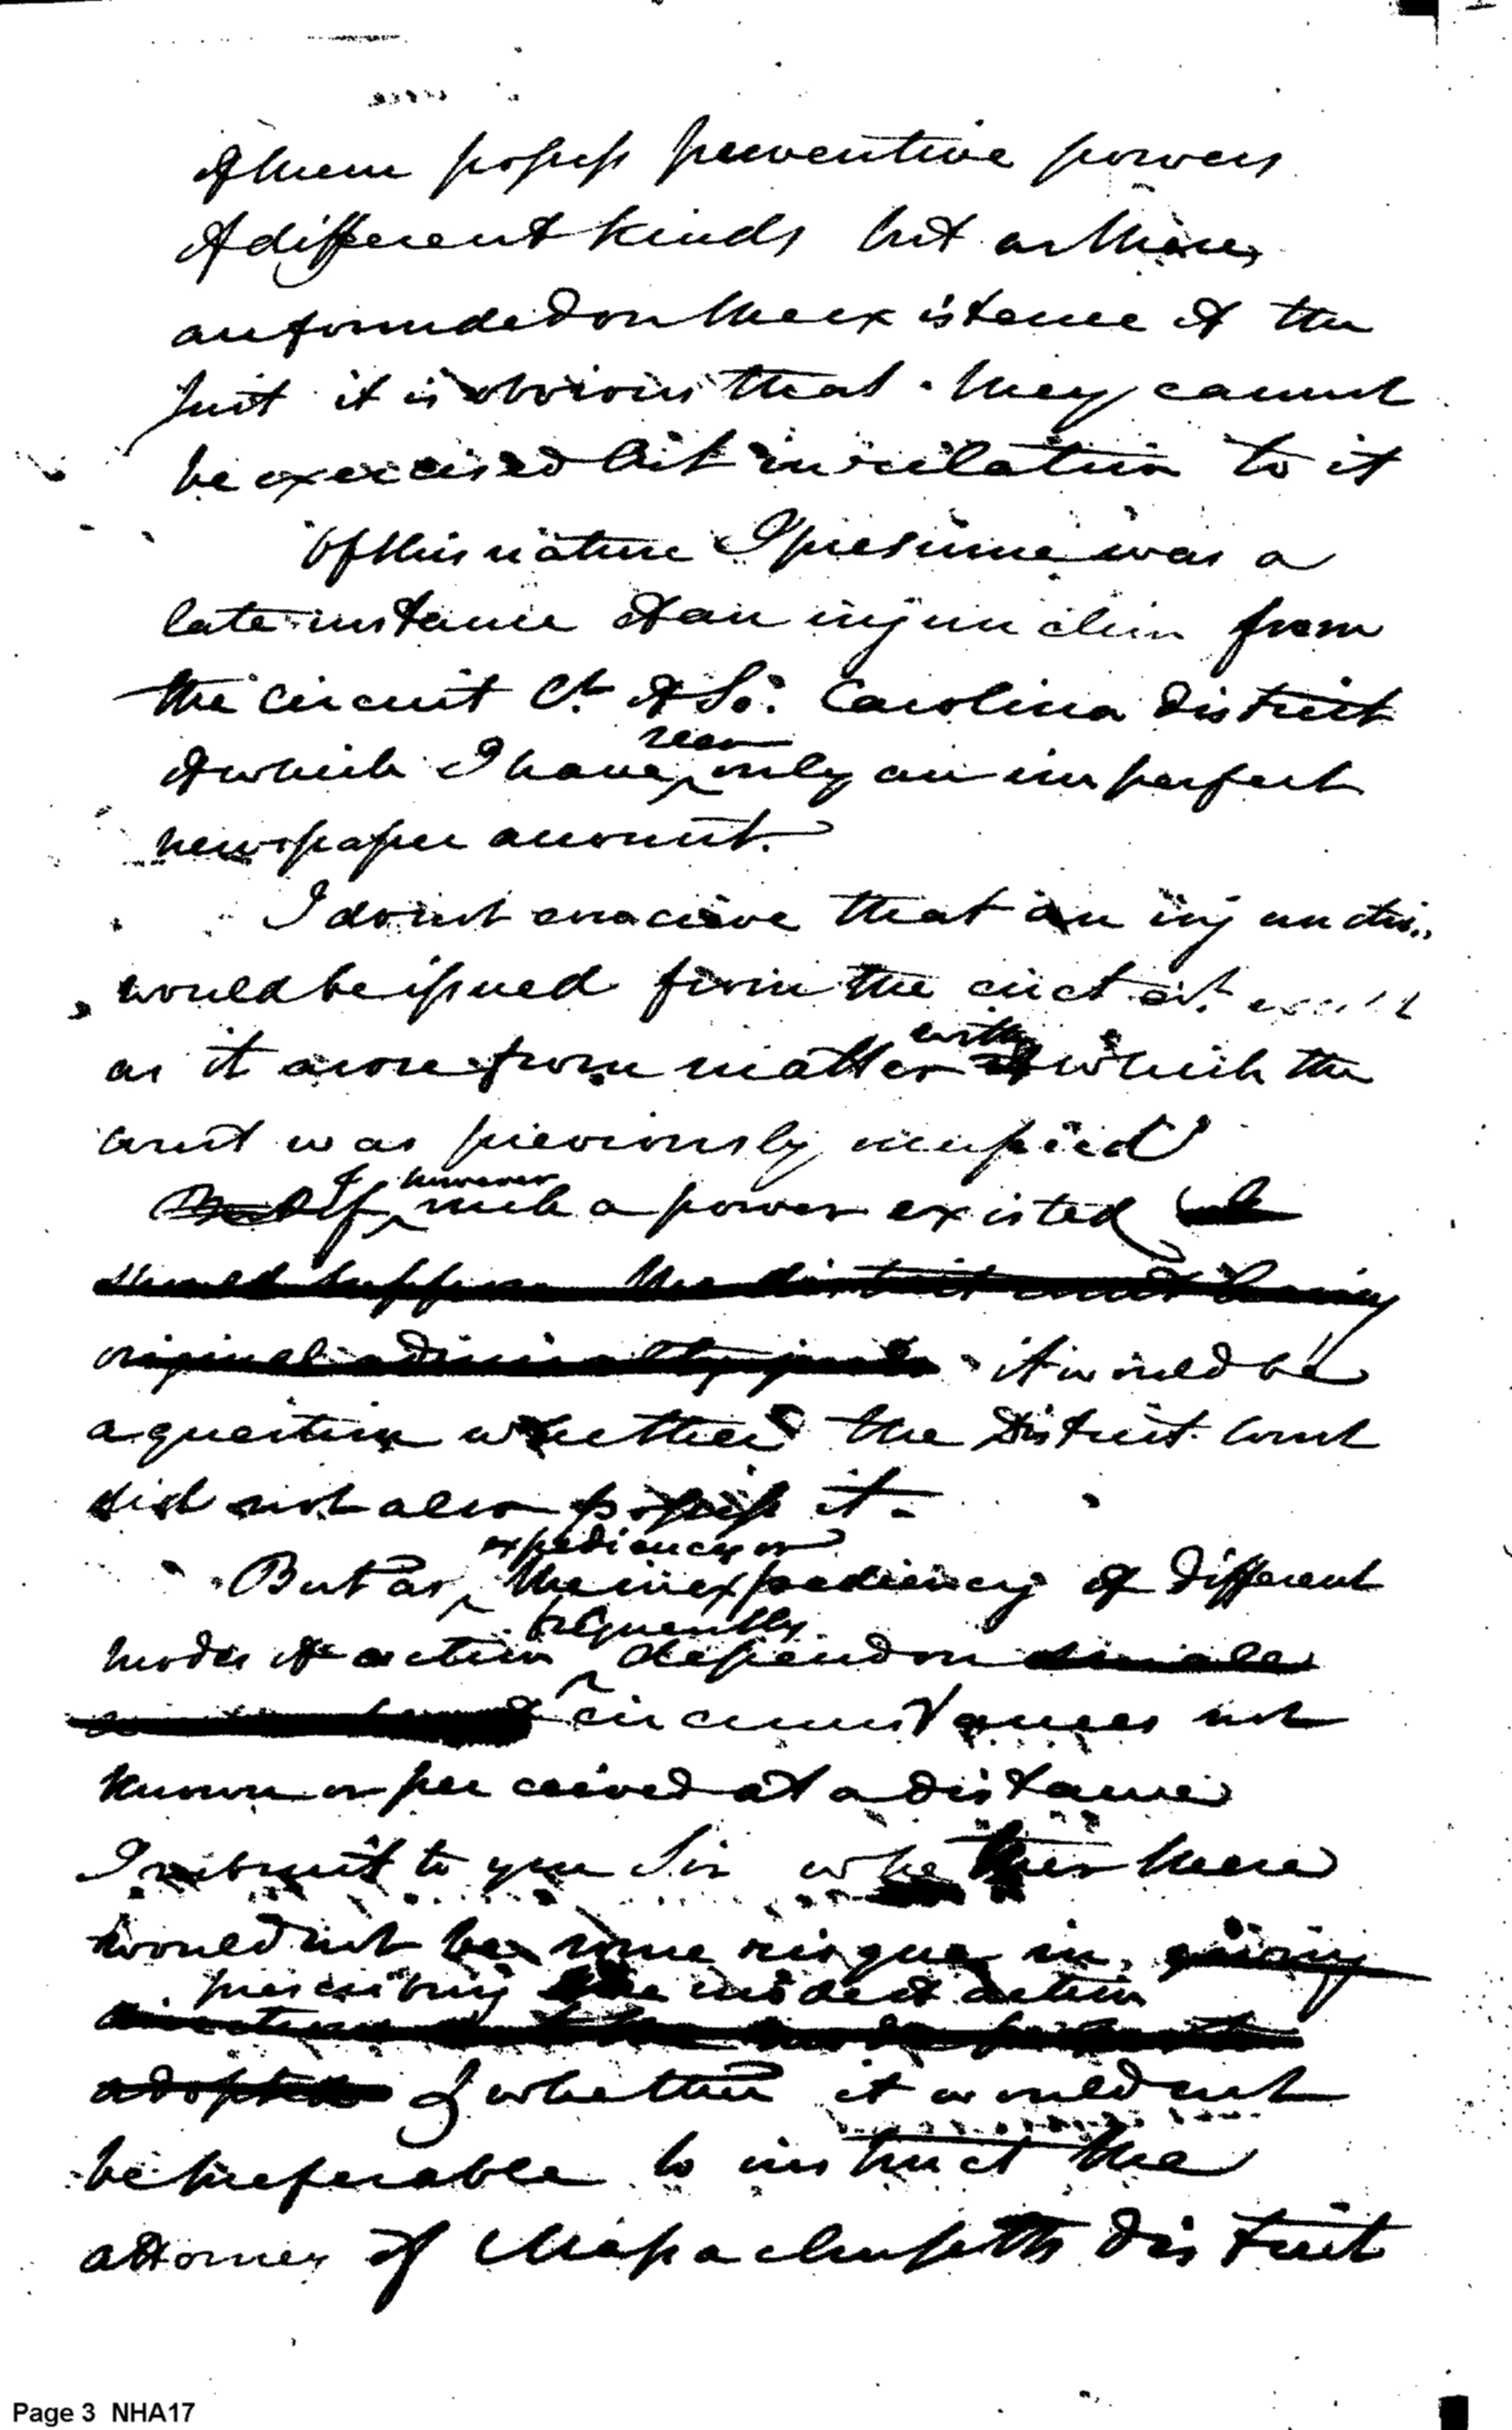 of them possess preventive powers
of different kinds but as these
are founded on the existence of the
suit it is obvious that they cannot
be exercised but in relation to it
Of this nature I presume was a
late instance of an injunction from
the circuit Ct. of So. Carolina district
seen
of which I have only an imperfect
newspaper account.
I do not conceive that an injunction
would be issued from the circt ct.
with
as it arose from matter of which the
court was previously occupied
however
But If such a power existed I
should suppose the district court having
original admiralty it would be
a question whether the District Court
did not also possess it.
expediency or
But as the inexpediency of different
frequently
modes of action depend on
circumstances not
known or perceived at a distance
I submit to you Sir whether there
would not be some risque in giving
prescribing the mode of action
directions
adopted & whether it would not
be preferable to instruct the
attorney of Massachusetts district
Page 3 NHA17